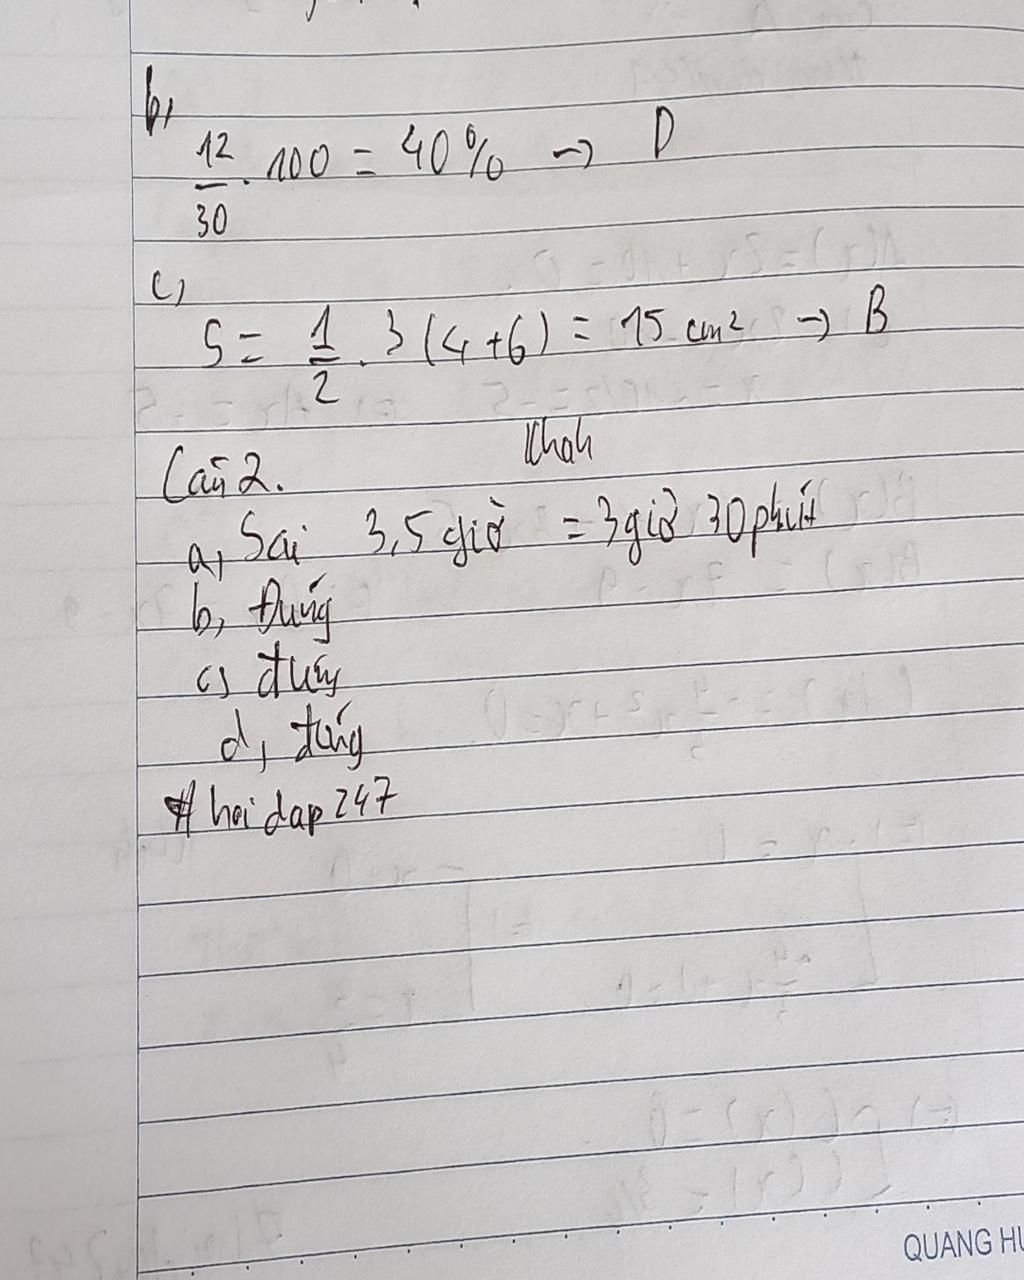 b,
12/30 . 100 = 40% → D
c,
S = 1/2 . 3 (4+6) = 15 cm² → B
Khah
Câu 2.
a, Sai 3,5 giờ = 3 giờ 30 phút
b, Đúng
c, đúng
d, đúng
# hoi dap 247
QUANG HU